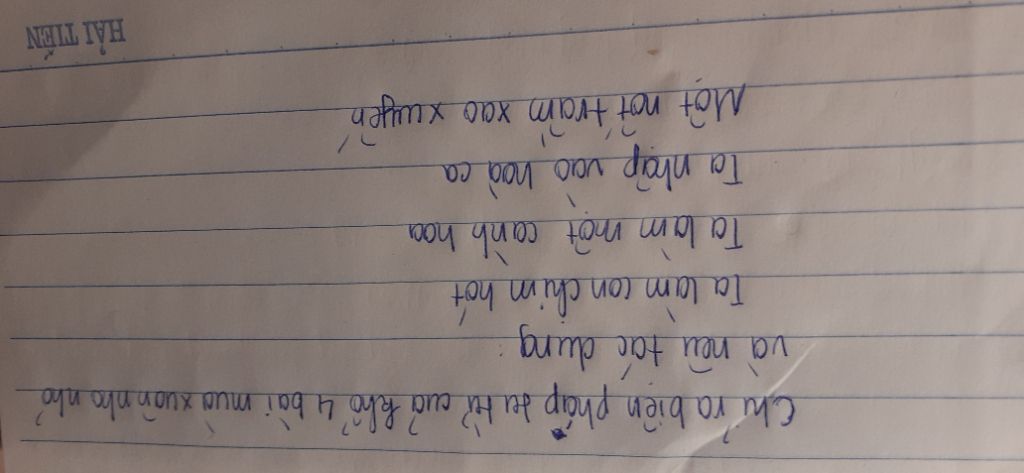 Chỉ ra biện pháp tu từ của khổ 4 bài mùa xuân nho nhỏ
và nêu tác dụng:
Ta làm con chim hót
Ta làm một cành hoa
Ta nhập vào hoà ca
Một nốt trầm xao xuyến
HẢI TIẾN